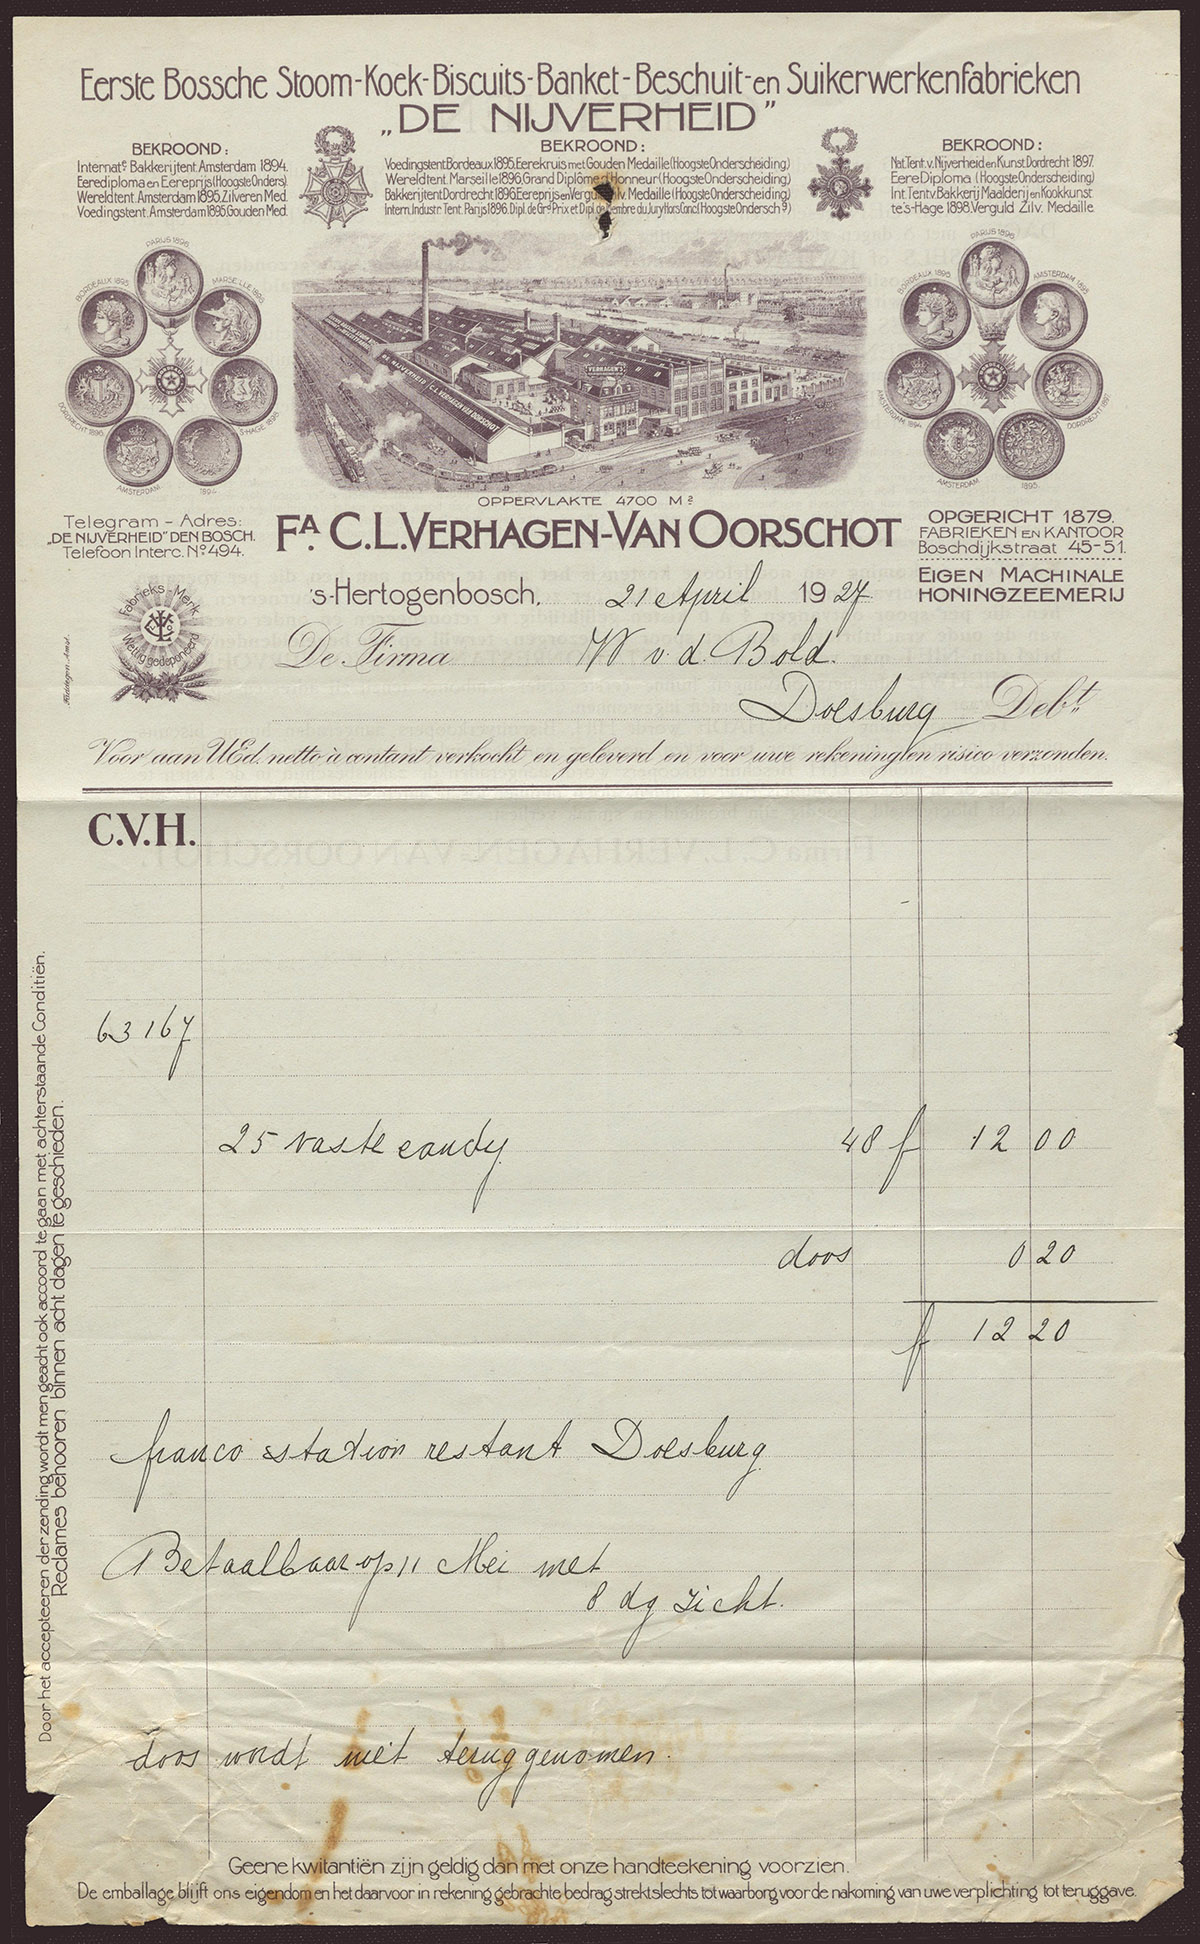 Eerste Bossche Stoom-Koek-Biscuits-Banket-Beschuit-en Suikerwerkenfabrieken
„DE NIJVERHEID”
BEKROOND:
Internat.e Bakkerijtent. Amsterdam 1894.
Eerediploma en Eereprijs (Hoogste Onders.)
Wereldtent. Amsterdam 1895. Zilveren Med.
Voedingstent. Amsterdam 1895 Gouden Med.
BEKROOND:
Voedingstent Bordeaux 1895. Eerekruis met Gouden Medaille (Hoogste Onderscheiding)
Wereldtent. Marseille 1896, Grand Diplôme d'Honneur (Hoogste Onderscheiding)
Bakkerijtent Dordrecht 1896. Eereprijs en Verguld Zilv. Medaille (Hoogste Onderscheiding)
Intern. Industr. Tent. Parijs 1896. Dipl. de Grd Prix et Dipl. de Membre du Jury Hors Conc. (Hoogste Ondersch.g)
BEKROOND:
Nat. Tent. v. Nijverheid en Kunst Dordrecht 1897.
Eere Diploma (Hoogste Onderscheiding)
Int. Tent. v. Bakkerij Maalderij en Kookkunst
te 's-Hage 1898. Verguld Zilv. Medaille
PARIJS 1896
BORDEAUX 1895
MARSEILLE 1895
DORDRECHT 1896
'S-HAGE 1898
AMSTERDAM
1894
PARIJS 1896
BORDEAUX 1895
AMSTERDAM 1895
AMSTERDAM 1894
DORDRECHT 1897
AMSTERDAM
1895
VERHAGEN'S
DE NIJVERHEID C.L. VERHAGEN VAN OORSCHOT
OPPERVLAKTE 4700 M2
Telegram - Adres:
„DE NIJVERHEID” DEN BOSCH.
Telefoon Interc. No 494.
FA. C.L. VERHAGEN-VAN OORSCHOT
OPGERICHT 1879.
FABRIEKEN EN KANTOOR
Boschdijkstraat 45-51.
EIGEN MACHINALE
HONINGZEEMERIJ
Fabrieks-Merk
Wettig gedeponeerd
's-Hertogenbosch, 21 April 1927
De Firma W v. d. Bold.
Doesburg Debt.
Voor aan UEd. netto à contant verkocht en geleverd en voor uwe rekening en risico verzonden.
C.V.H.
63167
25 vaste candy 48 f 12 00
doos 0 20
f 12 20
franco station restant Doesburg
Betaalbaar op 11 Mei met
8 dg zicht.
doos wordt niet teruggenomen.
Door het accepteeren der zending wordt men geacht ook accoord te gaan met achterstaande Conditiën.
Reclames behooren binnen acht dagen te geschieden.
Geene kwitantiën zijn geldig dan met onze handteekening voorzien.
De emballage blijft ons eigendom en het daarvoor in rekening gebrachte bedrag strekt slechts tot waarborg voor de nakoming van uwe verplichting tot teruggave.